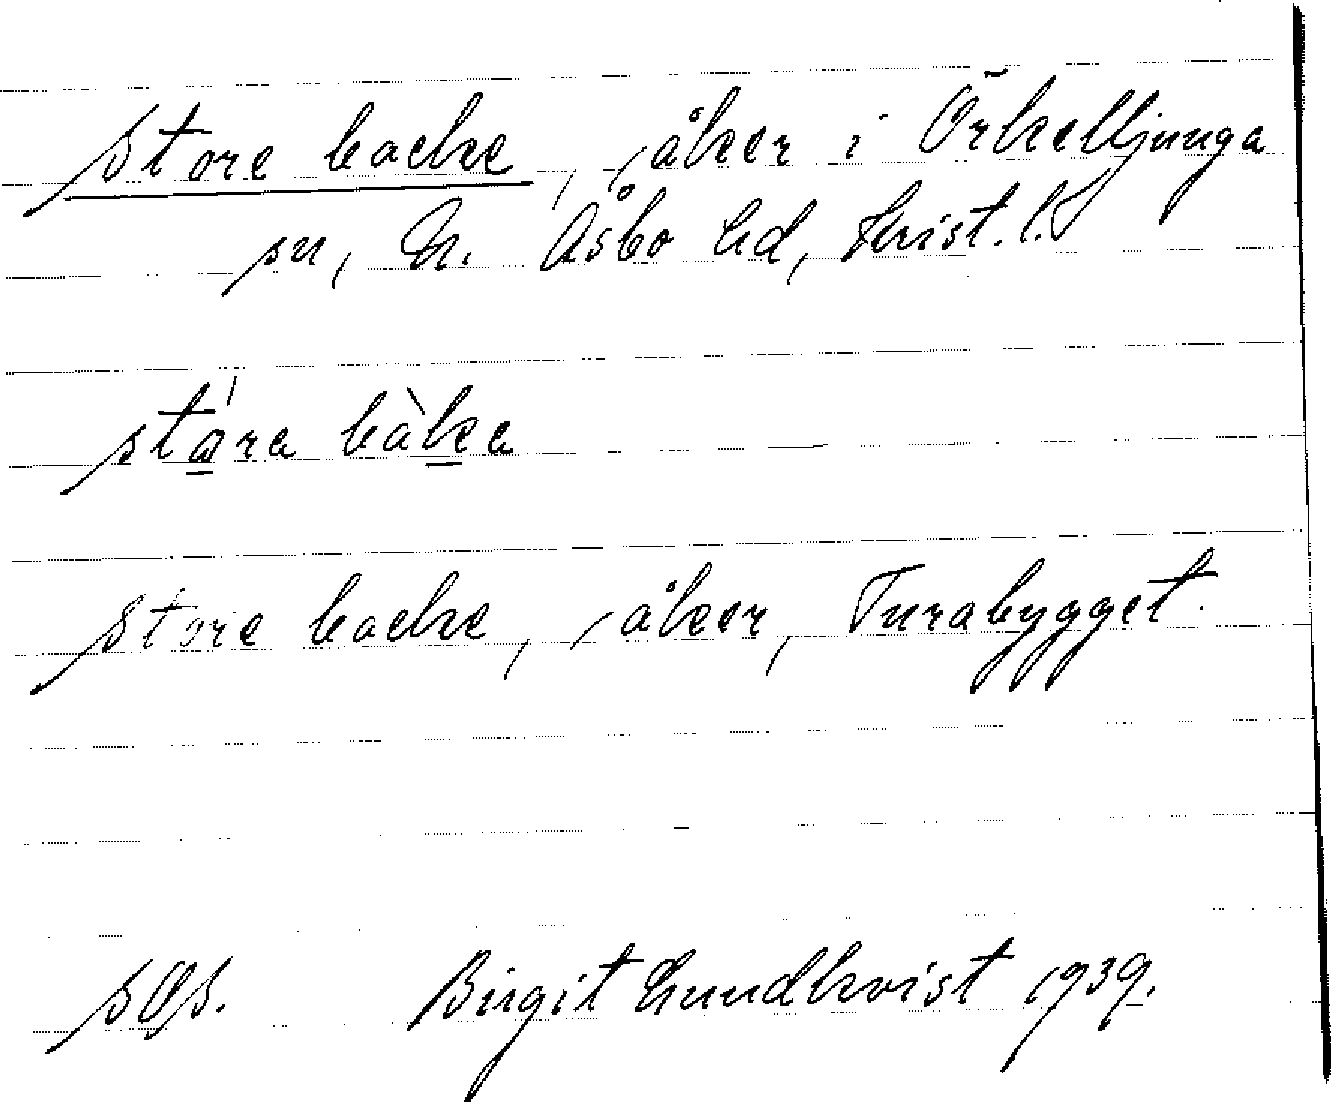 Store backe, åker i Örkelljunga
sn, N. Åsbo hd, Krist. l.
stara bàka
Store backe, åker, Turabygget.
sOs. Birgit Lundkvist 1939.